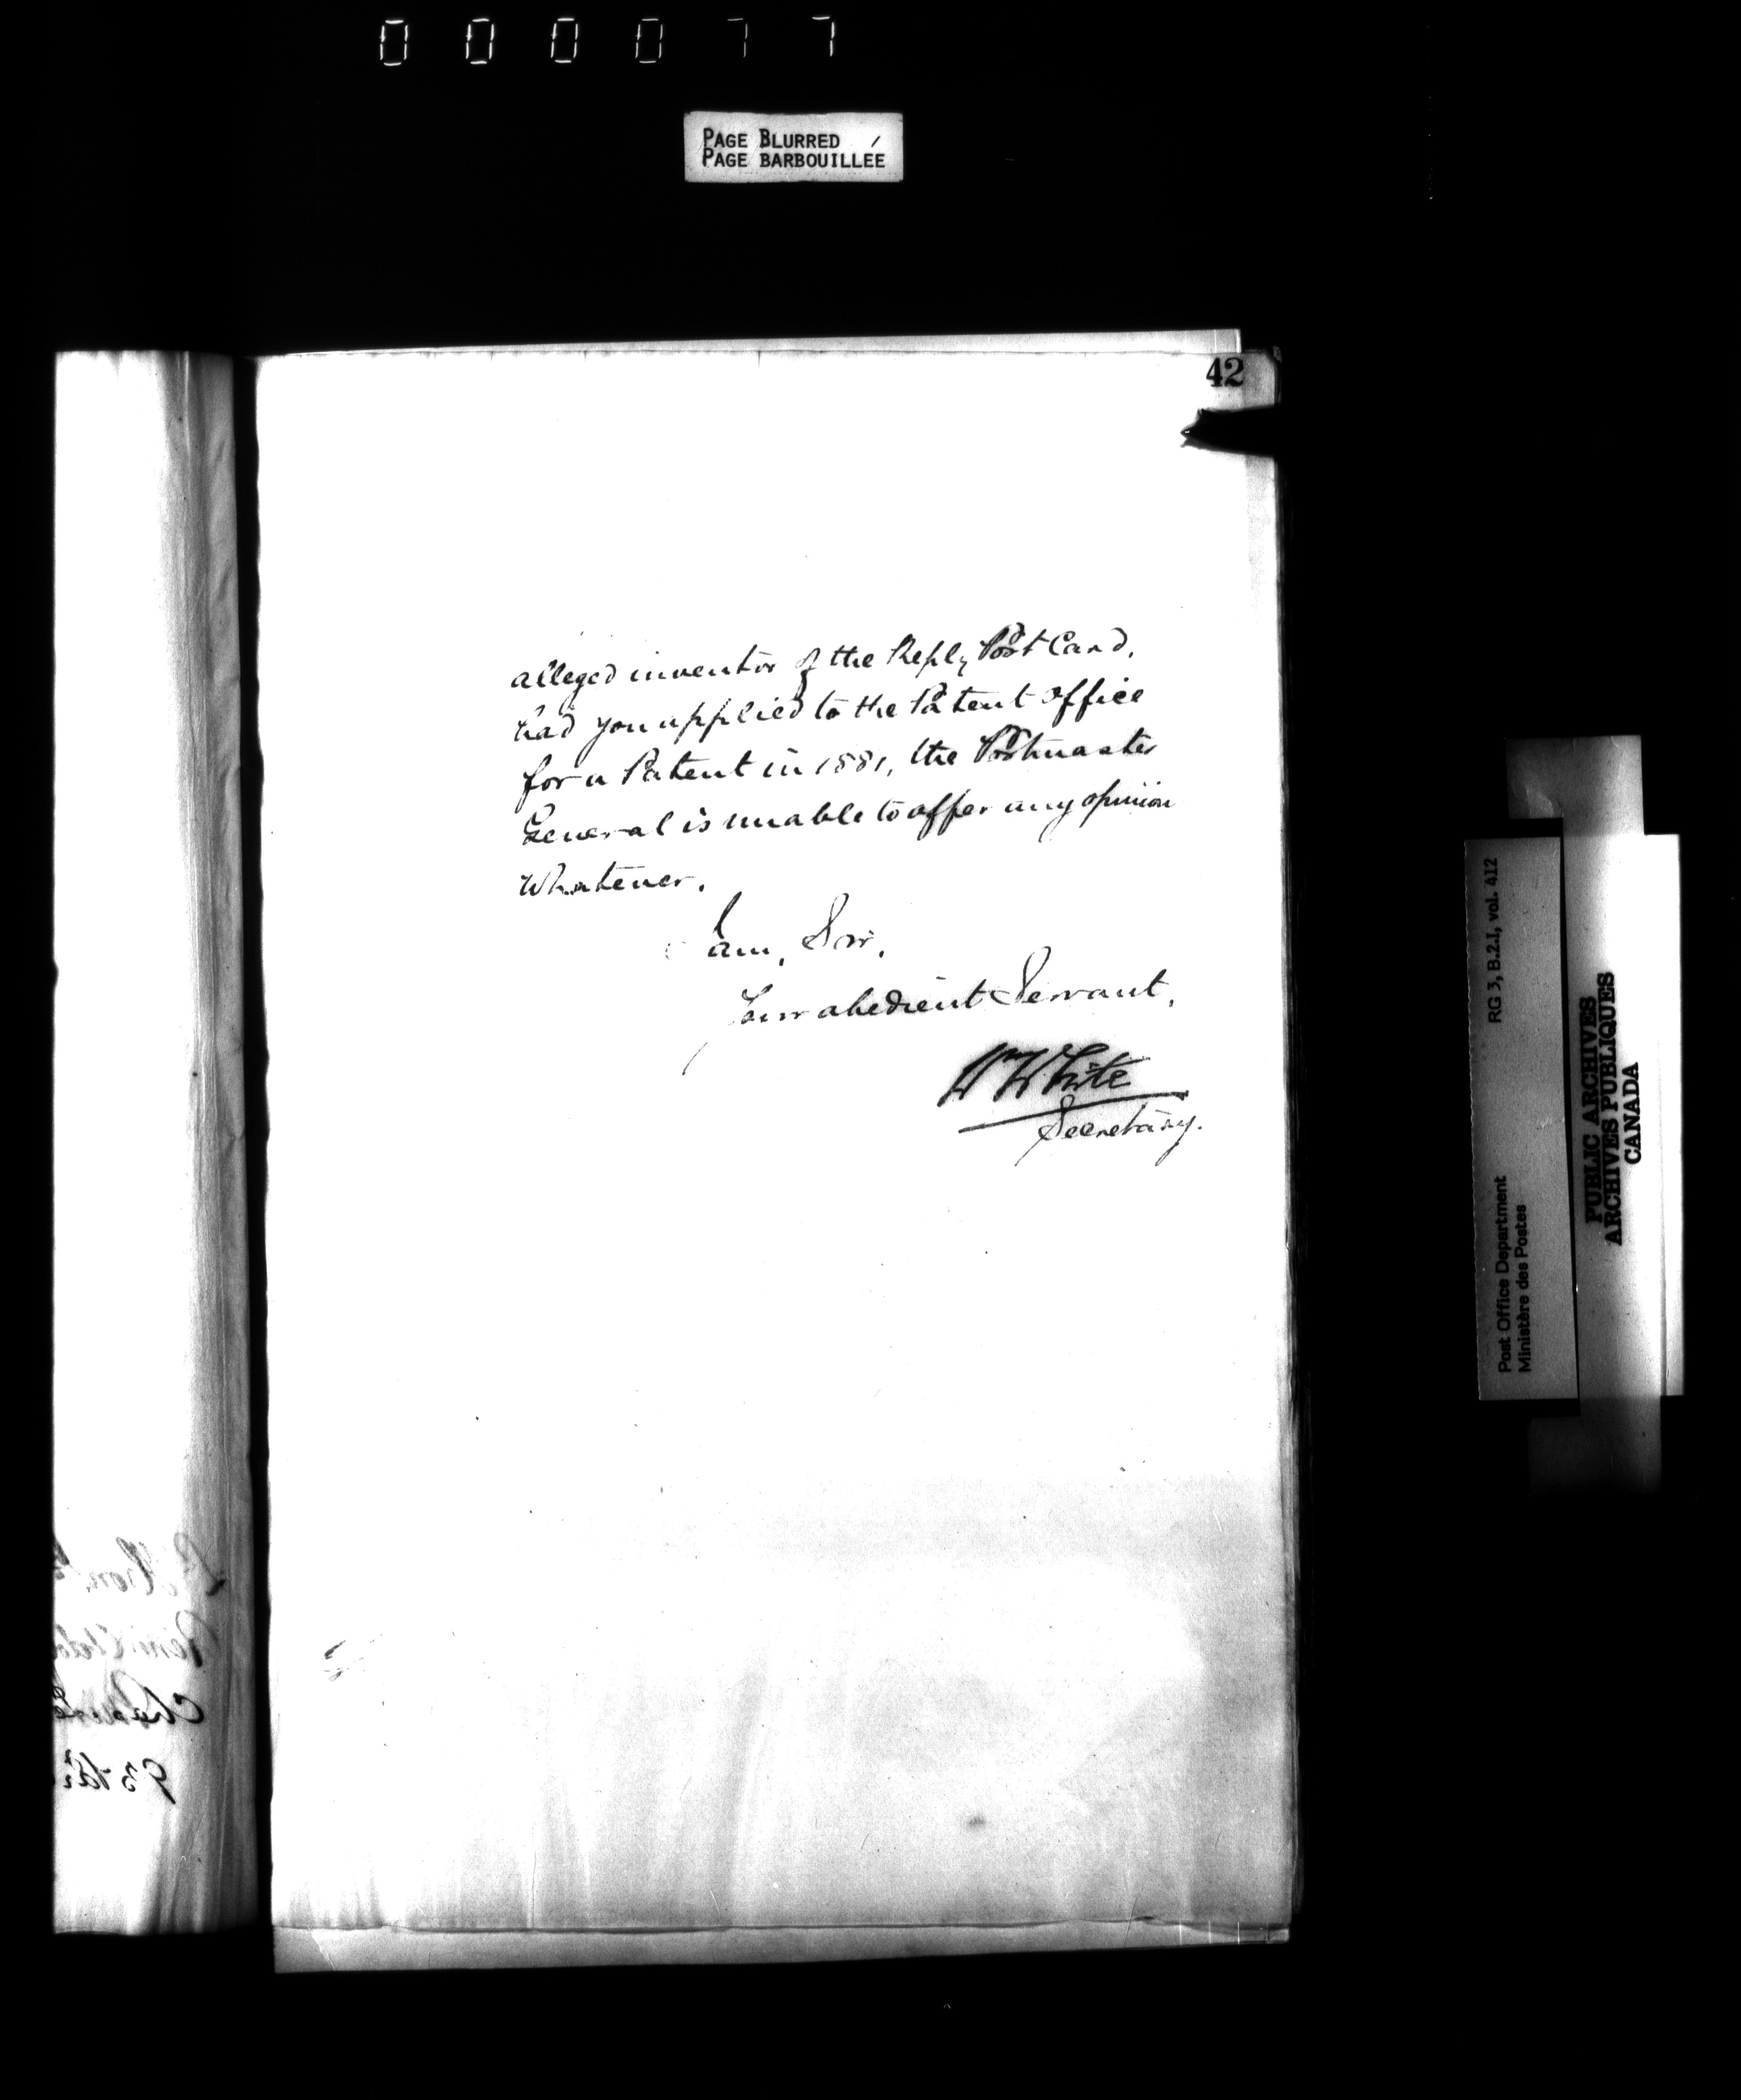 000077
PAGE BLURRED
PAGE BARBOUILLÉE
42
alleged inventor of the Reply Post Card,
had you applied to the Patent Office
for a Patent in 1881, the Postmaster
General is unable to offer any opinion
whatever.
I am, Sir,
Your obedient Servant,
W White
Secretary.
RG 3, B.2.1, vol. 412
Post Office Department
Ministère des Postes
PUBLIC ARCHIVES
ARCHIVES PUBLIQUES
CANADA